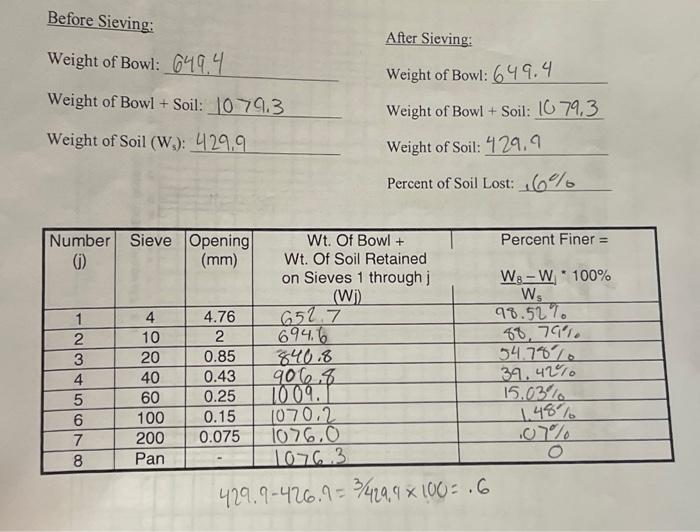 Before Sieving:
After Sieving:
Weight of Bowl: 649.4
Weight of Bowl: 649.4
Weight of Bowl + Soil: 1079.3
Weight of Bowl + Soil: 1079.3
Weight of Soil (Ws): 429.9
Weight of Soil: 429.9
Percent of Soil Lost: .6%
Number (j) Sieve Opening (mm) Wt. Of Bowl + Wt. Of Soil Retained on Sieves 1 through j (Wj) Percent Finer = WB – Wj * 100% Ws
1 4 4.76 652.7 98.52%
2 10 2 694.6 88.79%
3 20 0.85 840.8 54.78%
4 40 0.43 906.8 39.42%
5 60 0.25 1009.1 15.03%
6 100 0.15 1070.2 1.48%
7 200 0.075 1076.0 .07%
8 Pan - 1076.3 0
429.9-426.9= 3/429.9 x 100= .6